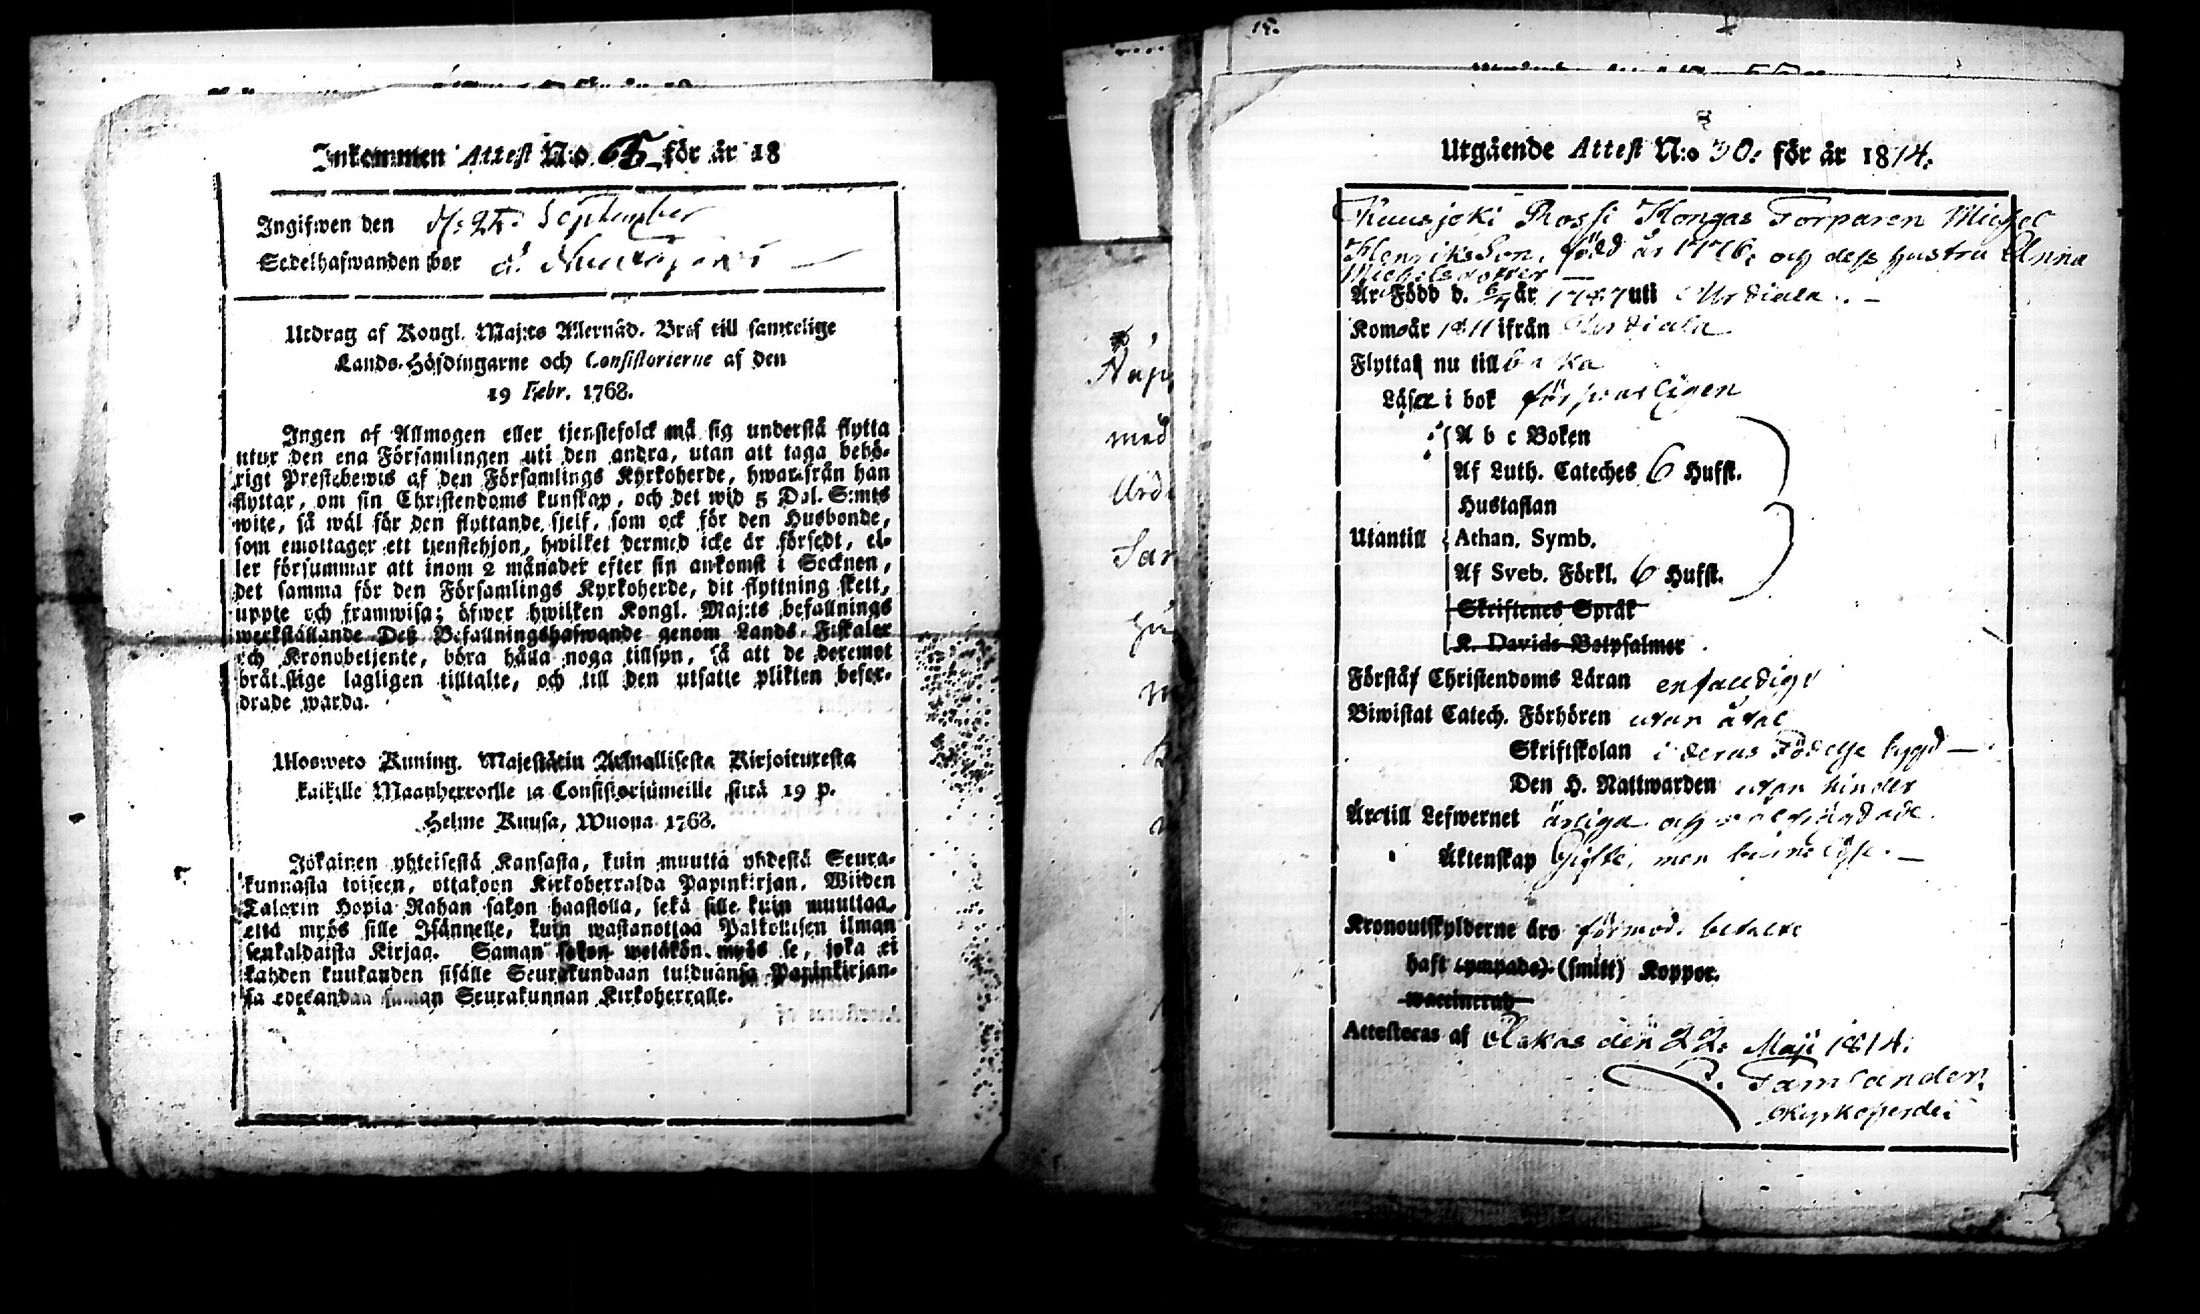 Inkommen Attest N:o 65 för år 18
Ingifwen den d. 24. September
Sedelhafwanden bor å
Utdrag af Kongl. Maj:ts Allernåd. Bref till samtelige
Lands-Höfdingarne och Consistorierne af den
19 Febr. 1768.
Ingen af Allmogen eller tjenstefolck må sig understå flytta
utur den ena Församlingen uti den andra, utan att taga behö-
rigt Prestebewis af den Församlings Kyrkoherde, hwarifrån han
flyttar, om sin Christendoms kunskap, och det wid 5 Dal. S:mts
wite, så wäl för den flyttande sjelf, som ock för den Husbonde,
som emottager ett tjenstehjon, hwilket dermed icke är försedt, el-
ler försummar att inom 2 månader efter sin ankomst i Socknen,
det samma för den Församlings Kyrkoherde, dit flyttning skett,
uppte och framwisa; öfwer hwilken Kongl. Maj:ts befallnings
werkställande Deß Befallningshafwande genom Lands-Fiskaler
och Kronobetjente, böra hålla noga tillsyn, så att de deremot
brätslige lagligen tilltalte, och till den utsatte plikten befor-
drade warda.
Ulosweto Kuning. Majestätin Armollisesta Kirjoituresta
kaikille Maanherroille ja Consistoriumeille siitä 19 p.
Helme Kuusa, Wuona 1768.
Jokainen yhteisestä Kansasta, kuin muutta yhdestä Seura-
kunnasta toiseen, ottakoon Kirkoherralda Papinkirjan, Wiiden
Talarin Hopia Rahan sakon haastolla, sekä sille kuin muuttaa,
että myös sille Isännelle, kuin wastanottaa Palkolisen ilman
senkaldaista Kirjaa. Saman sakon wetäkön myös se, joka ei
kahden kuukauden sisälle Seurakundaan tulduansa Papinkirjan-
sa edeskandaa saman Seurakunnan Kirkoherralle.
15.
Nap
med
Urd
San
Utgående Attest N:o 30. för år 1814.
Kuusjoki Rossi Kongas Torparen Michel
Henriksson, född år 1776. och dess hustru Anna
Michelsdotter —
Är Född d. 6/9 år 1787 uti Urdiala. —
Kom år 1811 ifrån Urdiala
Flytta nu tillbaka
Läsa i bok försvarligen
A b c Boken
Af Luth. Cateches 6 Hufst.
Hustaflan
Utantill Athan. Symb.
Af Sveb. Förkl. 6 Hufst.
Skriftenes Språk
K. Davids Botpsalmer
Förstå Christendoms Läran enfaldigt
Biwistat Catech. Förhören utan åtal
Skriftskolan i deras Födelse bygd —
Den H. Nattwarden utan hinder
Äro till Lefwernet ärliga och
Äktenskap Gifte, men —
Kronoutskylderne äro förmod. betalte
haft (ympade) (smitt) Koppor.
waccinerad
Attesteras af Akas den 22. Maji 1814.
Tamlander.
Kyrkoherde